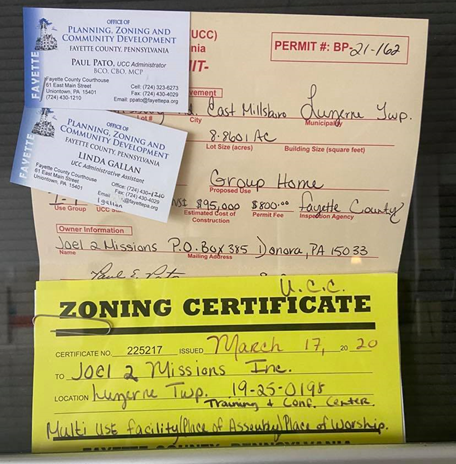 OFFICE OF
PLANNING, ZONING AND
COMMUNITY DEVELOPMENT
FAYETTE COUNTY, PENNSYLVANIA
PAUL PATO, UCC Administrator
BCO, CBO, MCP
Fayette County Courthouse
61 East Main Street
Uniontown, PA 15401
(724) 430-1210
Cell: (724) 323-6273
Fax: (724) 430-4029
Email: ppato@fayettepa.org
FAYETTE
OFFICE OF
PLANNING, ZONING AND
COMMUNITY DEVELOPMENT
FAYETTE COUNTY, PENNSYLVANIA
LINDA GALLAN
UCC Administrative Assistant
Fayette County Courthouse
61 East Main Street
Uniontown, PA 15401
Office: (724)
Fax: (724) 430-4029
FAYETTE
UCC)
PERMIT #: BP-21-162
East Millsboro Luzerne Twp.
Lot # City Municipality
8.8601 AC
Lot Size (acres) Building Size (square feet)
Group Home
Proposed Use
$95,000 $800.00 Fayette County
Use Group Estimated Cost of Construction Permit Fee Inspection Agency
Owner Information
Joel 2 Missions P.O. Box 385 Donora, PA 15033
Mailing Address
Paul E Pato
U.C.C.
ZONING CERTIFICATE
CERTIFICATE NO. 225217 ISSUED March 17, 2020
TO Joel 2 Missions Inc.
LOCATION Luzerne Twp. 19-25-0198
Training + Conf. Center.
Multi Use facility/Place of Assembly/Place of Worship.
FAYETTE COUNTY, PENNSYLVANIA